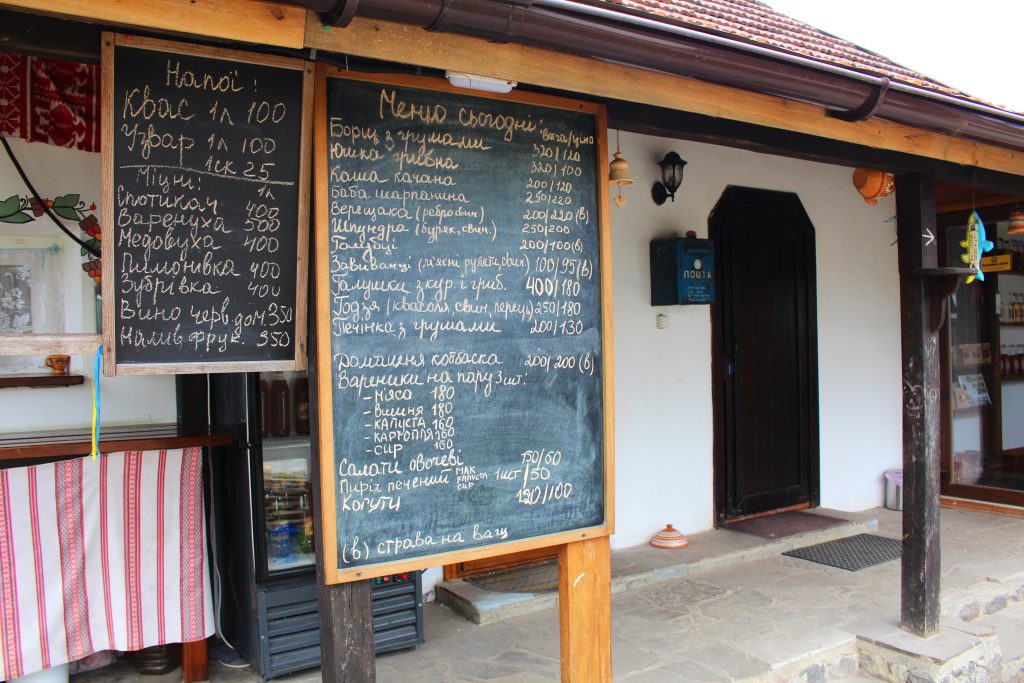 Напої:
Квас 1л 100
Узвар 1л 100
1ск 25
Міцні: 1л
Спотикач 400
Варенуха 500
Медовуха 400
Лимонівка 400
Зубрівка 400
Вино черв. дом. 350
Налив. фрук. 350
Меню сьогодні:
вага/ціна
Борщ з грушами 320/120
Юшка грибна 320/100
Каша качана 200/120
Баба шарпанина 250/220
Верещака (ребро свин) 200/220 (в)
Шпундра (буряк, свин.) 250/200
Голубці 200/100 (в)
Завиванці (м'ясні рулети, свин) 100/95 (в)
Галушки з кур. і гриб. 400/180
Годзя (квасоля, свин, перець) 250/180
Печінка з грушами 200/130
Домашня ковбаска 200/200 (в)
Вареники на пару 3 шт:
- м'ясо 180
- вишня 180
- капуста 160
- картопля 160
- сир 160
Салати овочеві 150/60
Пиріг печений мак капуста сир 1 шт/50
Когути 120/100
(в) страва на вагу
ПОШТА